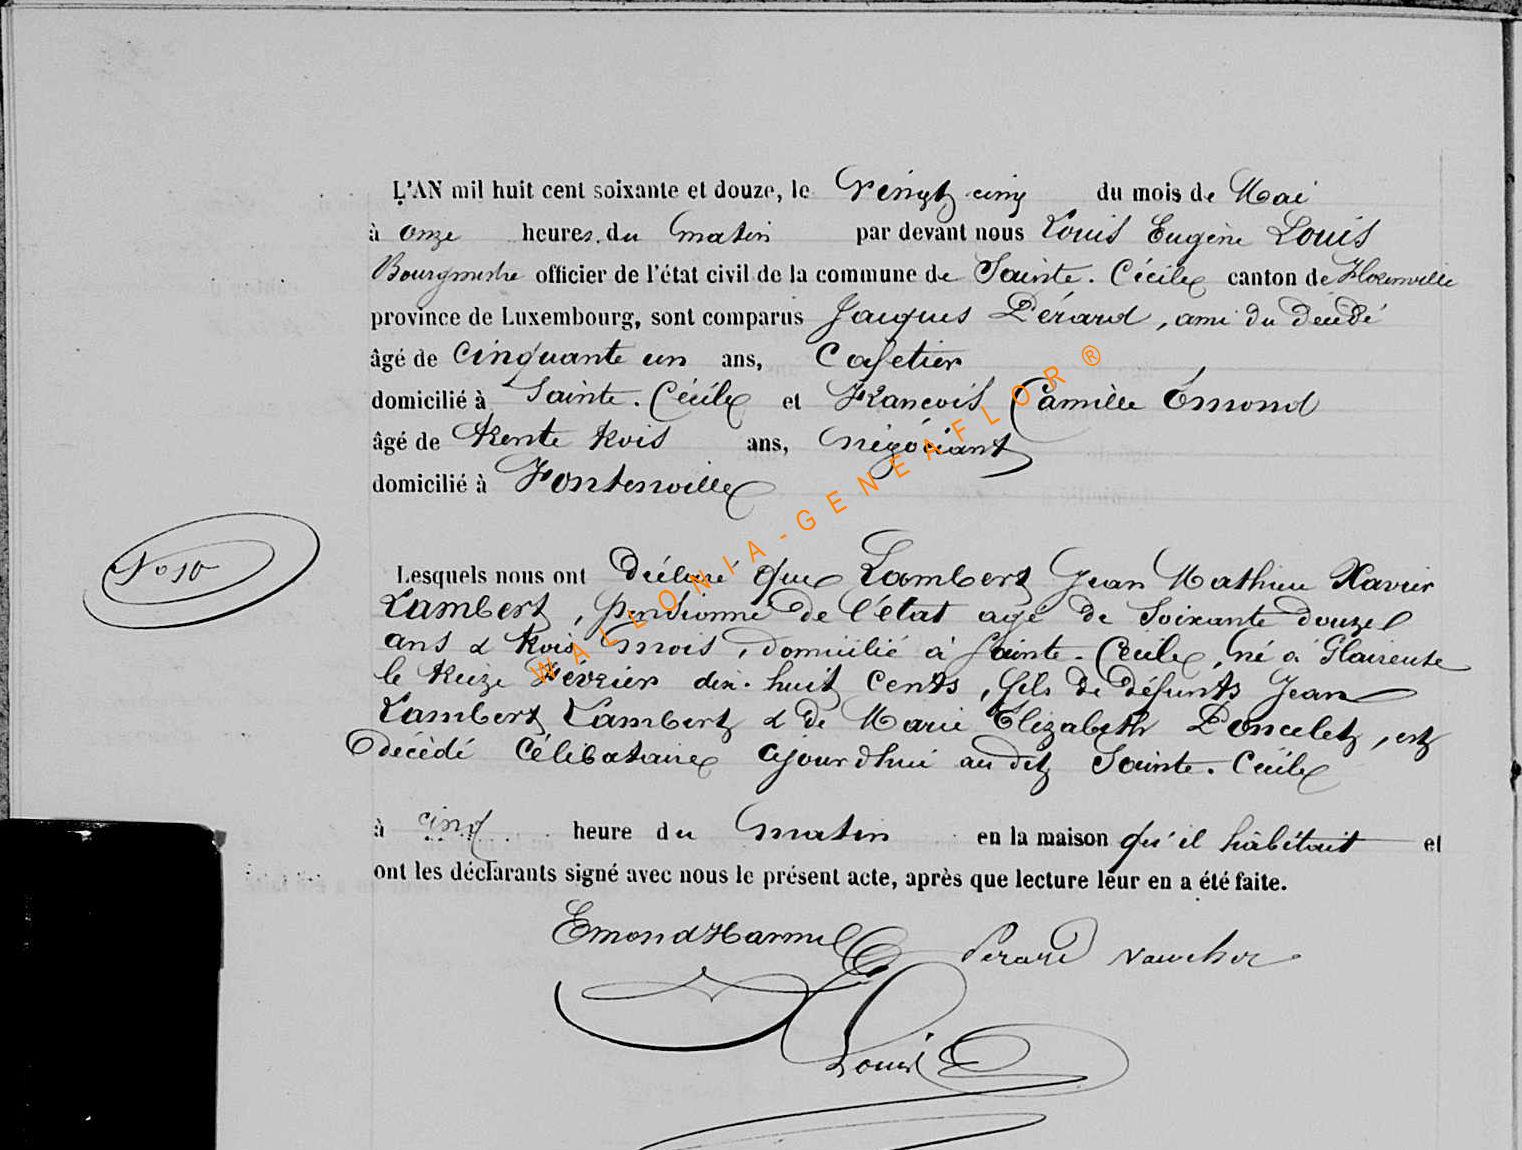 L'AN mil huit cent soixante et douze, le vingt cinq du mois de Mai
à onze heures du matin par devant nous Louis Eugène Louis
Bourgmestre officier de l'état civil de la commune de Sainte-Cécile canton de Florenville
province de Luxembourg, sont comparus Jacques Pérard, ami du décédé
âgé de cinquante un ans, Cafetier
domicilié à Sainte-Cécile et Francois Camille Émond
âgé de trente trois ans, négociant
domicilié à Fontenoille
No 10
Lesquels nous ont déclaré que Lambert Jean Mathieu Xavier
Lambert, pensionné de l'état agé de soixante douze
ans & trois mois, domicilié à Sainte-Cécile, né à
le treize Février dix-huit cents, fils de défunts Jean
Lambert Lambert & de Marie Elizabeth Poncelet, est
décédé célibataire ajourdhui au dit Sainte-Cécile
à cinq heure du matin en la maison qu'il habitait et
ont les déclarants signé avec nous le présent acte, après que lecture leur en a été faite.
Emond Harmel Perard
Louis
WALLONIA-GENEAFLOR®